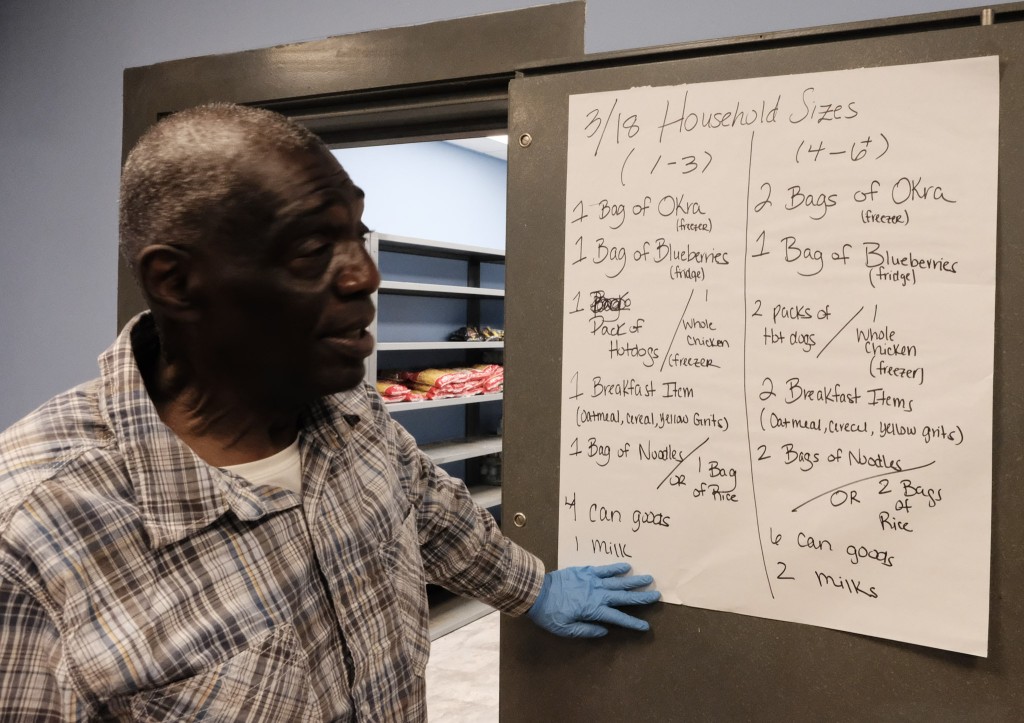 3/18 Household Sizes
(1-3)
1 Bag of Okra
(freezer)
1 Bag of Blueberries
(fridge)
1
Pack of
Hotdogs
/ 1
Whole
Chicken
(freezer
1 Breakfast Item
(Oatmeal, cereal, Yellow Grits)
1 Bag of Noodles
OR 1 Bag
of Rice
4 can goods
1 milk
(4-6+)
2 Bags of Okra
(freezer)
1 Bag of Blueberries
(fridge)
2 packs of
Hot dogs
/ 1
Whole
Chicken
(freezer)
2 Breakfast Items
(Oatmeal, cereal, yellow grits)
2 Bags of Noodles
OR 2 Bags
of
Rice
6 can goods
2 milks